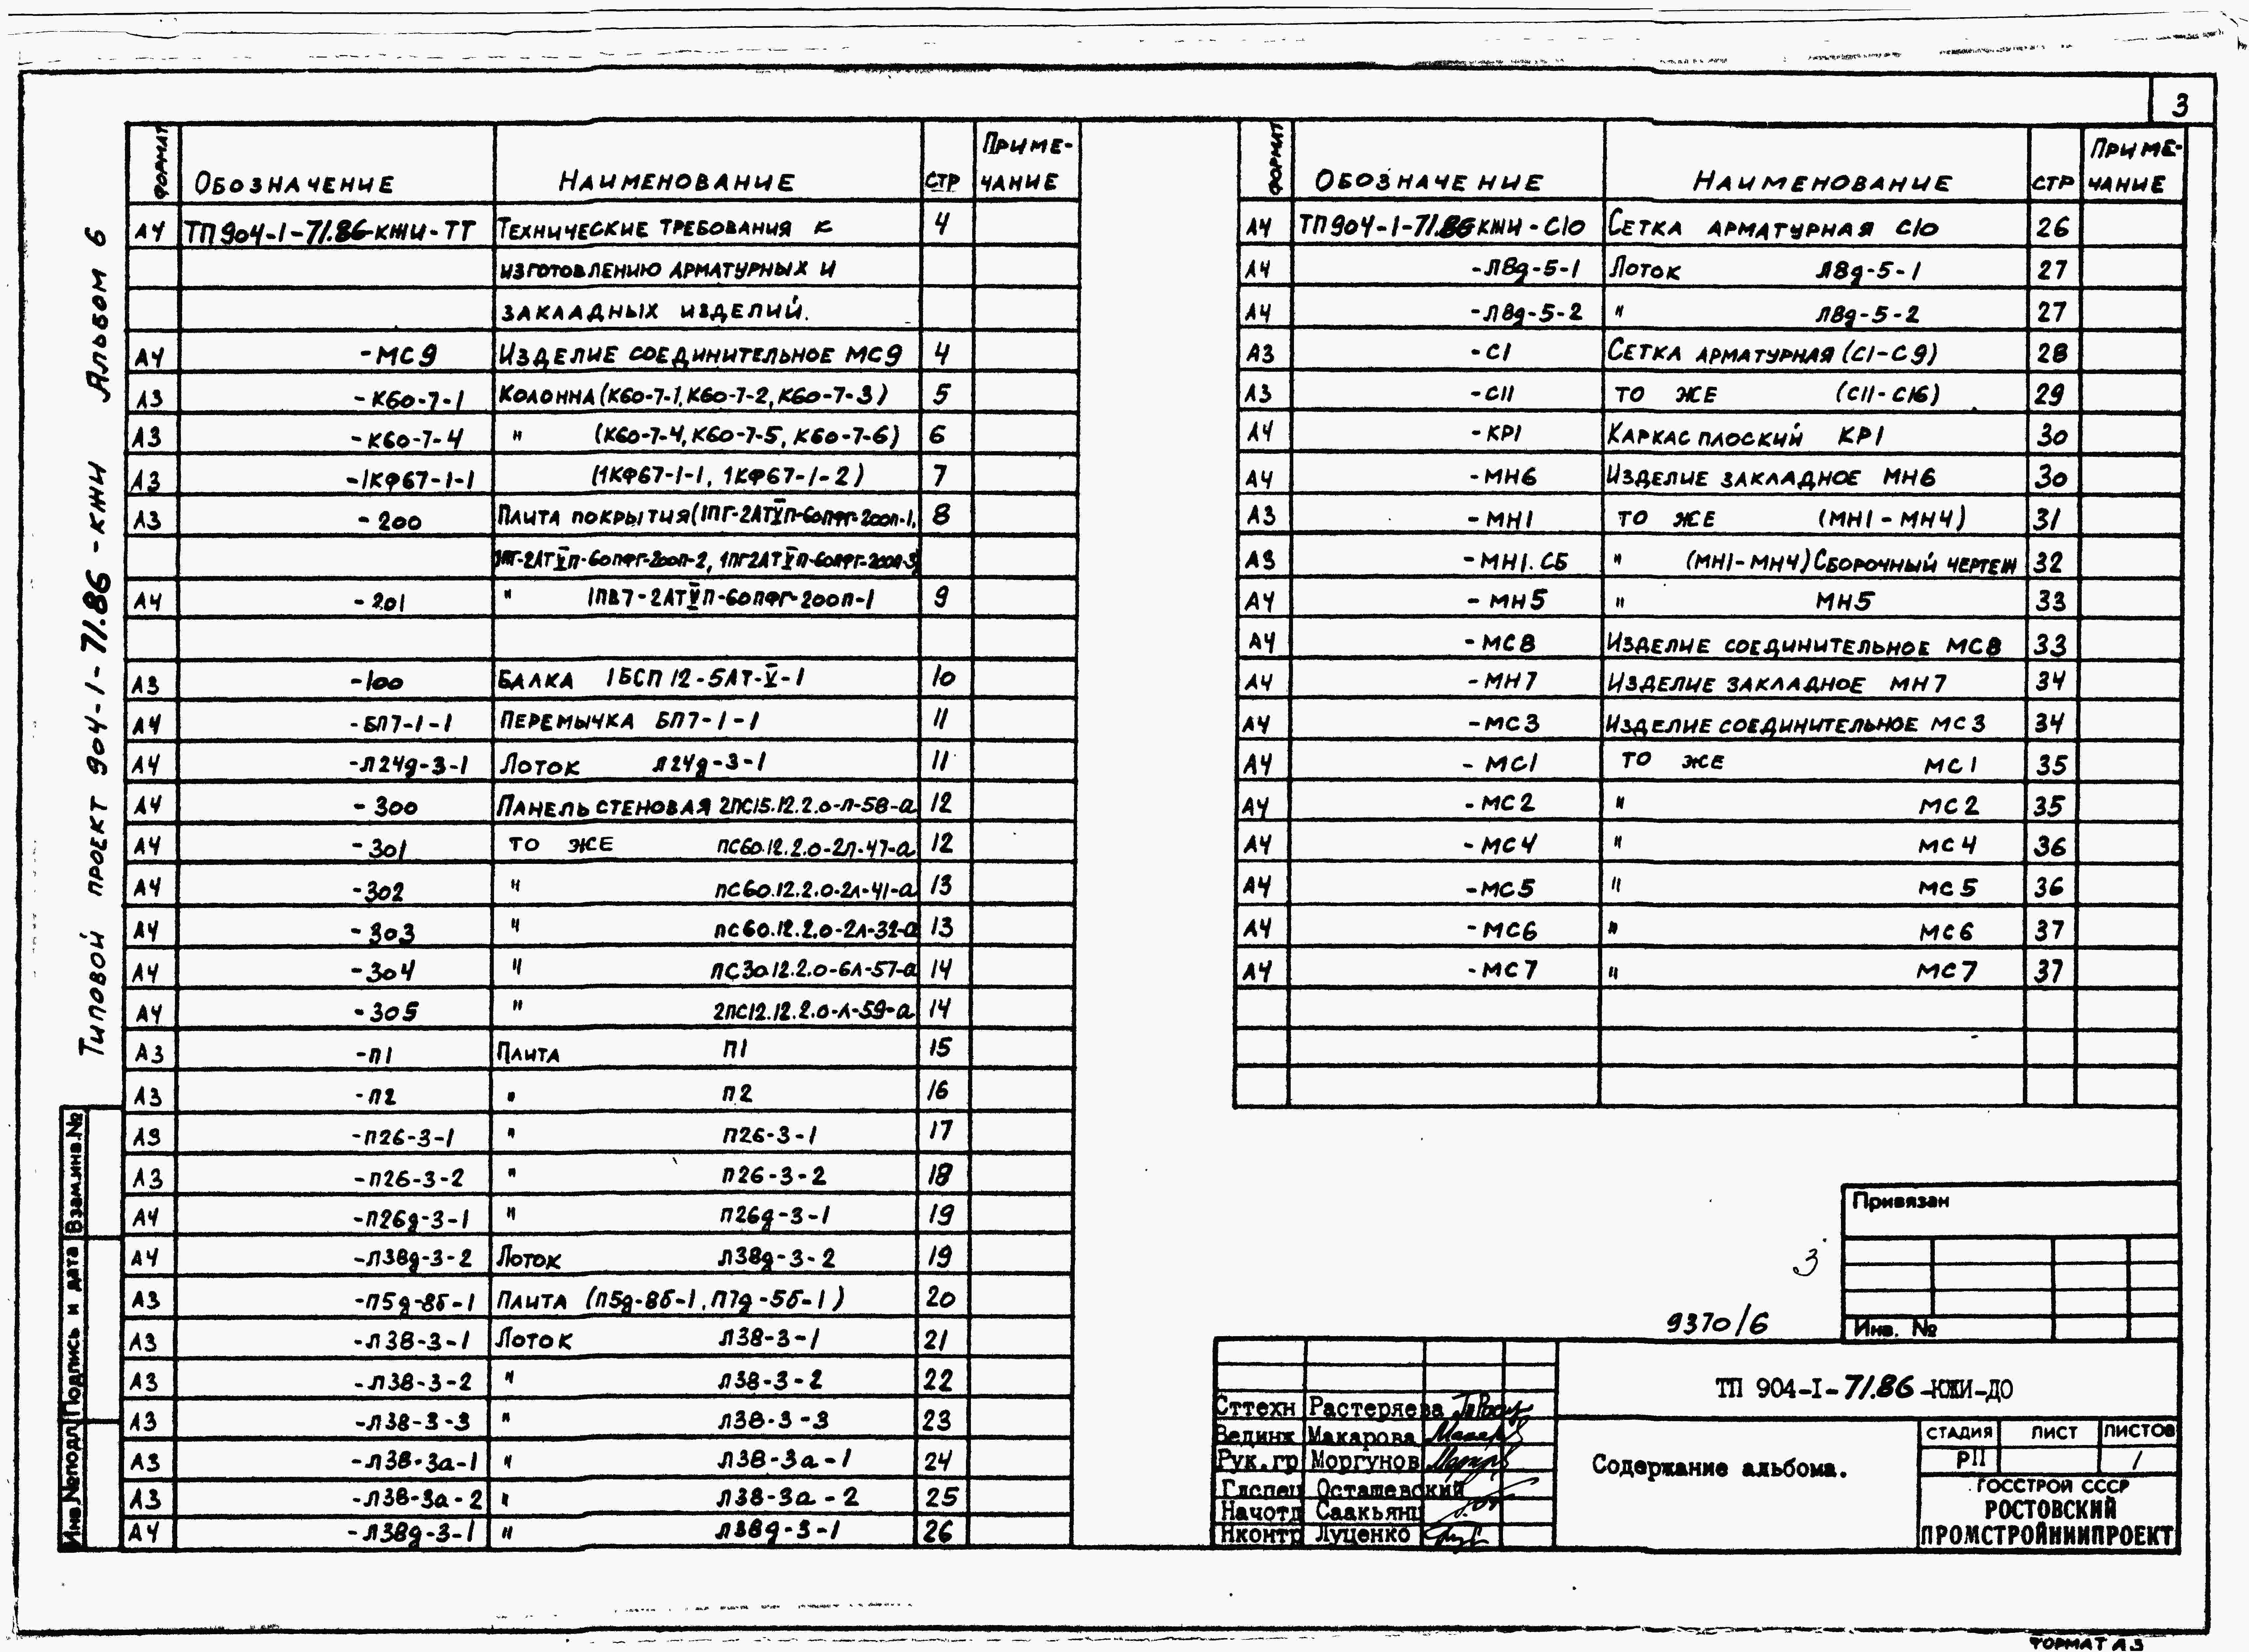 3
Типовой проект 904-1-71.86-КЖИ Альбом 6
Формат Обозначение Наименование Стр Примечание
А4 ТП904-1-71.86-КЖИ-ТТ Технические требования к 4
изготовлению арматурных и
закладных изделий.
А4 -МС9 Изделие соединительное МС9 4
А3 -К60-7-1 Колонна (К60-7-1, К60-7-2, К60-7-3) 5
А3 -К60-7-4 " (К60-7-4, К60-7-5, К60-7-6) 6
А3 -1КФ67-1-1 (1КФ67-1-1, 1КФ67-1-2) 7
А3 -200 Плита покрытия (1ПГ-2АТVП-60ПФГ-200П-1, 8
1ПГ-2АТVП-60ПФГ-200П-2, 1ПГ2АТVП-60ПФГ-200П-3)
А4 -201 " 1ПВ7-2АТVП-60ПФГ-200П-1 9
А3 -100 Балка 1БСП12-5АТ-V-1 10
А4 -БП7-1-1 Перемычка БП7-1-1 11
А4 -Л24д-3-1 Лоток Л24д-3-1 11
А4 -300 Панель стеновая 2ПС15.12.2.0-Л-58-а 12
А4 -301 То же ПС60.12.2.0-2Л-47-а 12
А4 -302 " ПС60.12.2.0-2Л-41-а 13
А4 -303 " ПС60.12.2.0-2Л-32-а 13
А4 -304 " ПС30.12.2.0-6Л-57-а 14
А4 -305 " 2ПС12.12.2.0-Л-59-а 14
А3 -П1 Плита П1 15
А3 -П2 " П2 16
А3 -П26-3-1 " П26-3-1 17
А3 -П26-3-2 " П26-3-2 18
А4 -П26д-3-1 " П26д-3-1 19
А4 -Л38д-3-2 Лоток Л38д-3-2 19
А3 -П5д-8б-1 Плита (П5д-8б-1, П7д-5б-1) 20
А3 -Л38-3-1 Лоток Л38-3-1 21
А3 -Л38-3-2 " Л38-3-2 22
А3 -Л38-3-3 " Л38-3-3 23
А3 -Л38-3а-1 " Л38-3а-1 24
А3 -Л38-3а-2 " Л38-3а-2 25
А4 -Л38д-3-1 " Л38д-3-1 26
Формат Обозначение Наименование Стр Примечание
А4 ТП904-1-71.86КЖИ-С10 Сетка арматурная С10 26
А4 -Л8д-5-1 Лоток Л8д-5-1 27
А4 -Л8д-5-2 " Л8д-5-2 27
А3 -С1 Сетка арматурная (С1-С9) 28
А3 -С11 То же (С11-С16) 29
А4 -КР1 Каркас плоский КР1 30
А4 -МН6 Изделие закладное МН6 30
А3 -МН1 То же (МН1-МН4) 31
А3 -МН1.СБ " (МН1-МН4) Сборочный чертеж 32
А4 -МН5 " МН5 33
А4 -МС8 Изделие соединительное МС8 33
А4 -МН7 Изделие закладное МН7 34
А4 -МС3 Изделие соединительное МС3 34
А4 -МС1 То же МС1 35
А4 -МС2 " МС2 35
А4 -МС4 " МС4 36
А4 -МС5 " МС5 36
А4 -МС6 " МС6 37
А4 -МС7 " МС7 37
Инв.№подл Подпись и дата Взам.инв.№
Привязан
Инв. №
3
9370/6
ТП 904-I-71.86-КЖИ-ДО
Сттехн Растеряева
Вединж Макарова
Рук.гр Моргунов
Глспец Осташевский
Начотд Саакьянц
Нконтр Луценко
Содержание альбома.
СТАДИЯ ЛИСТ ЛИСТОВ
РП 1
ГОССТРОЙ СССР
РОСТОВСКИЙ
ПРОМСТРОЙНИИПРОЕКТ
ФОРМАТ А3